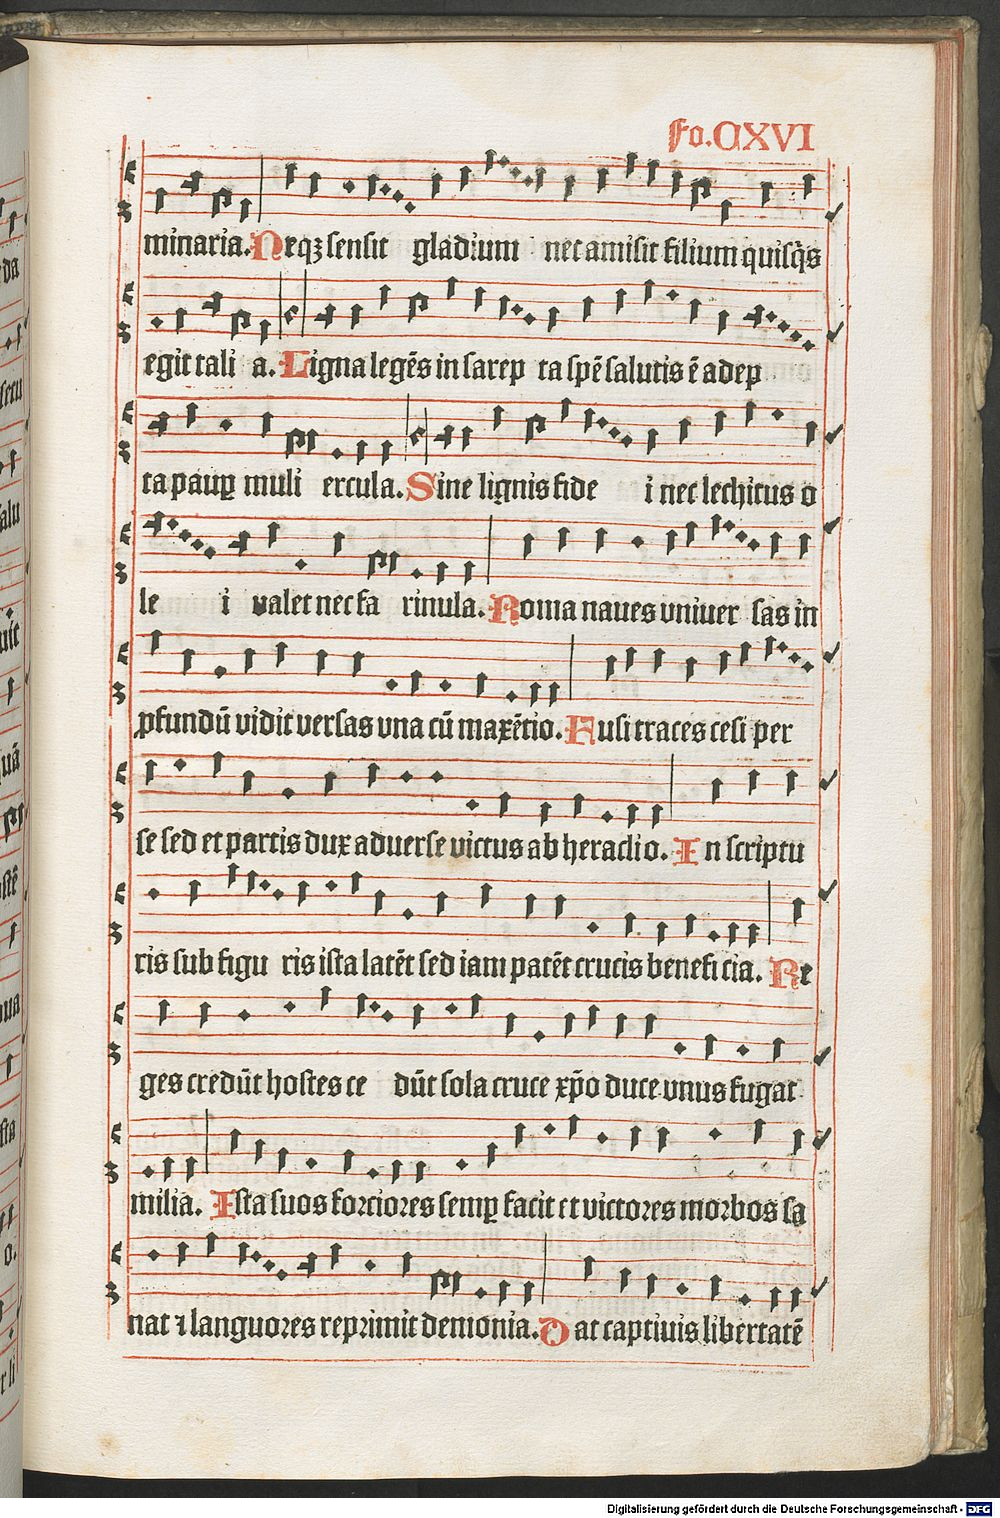 Fo.CXVI
minaria. Neqꝫ sensit gladium nec amisit filium quisq̃s
egit tali a. Ligna legẽs in sarep ta spẽ salutis ẽ adep
ta paup̲ muli ercula. Sine lignis fide i nec lechitus o
le i valet nec fa rinula. Roma naues vniuer sas in
ꝓfundũ vidit versas vna cũ maxẽtio. Fusi traces cesi per
se sed et partis dux aduerse victus ab heracli o. In scriptu
ris sub figu ris ista latẽt sed iam patẽt crucis benefi cia. Re
ges credũt hostes ce dũt sola cruce xp̃o duce vnus fugat
milia. Ista suos forciores semp̲ facit et victores morbos sa
nat ⁊ languores reprimit demonia. Dat captiuis libertatẽ
Digitalisierung gefördert durch die Deutsche Forschungsgemeinschaft - DFG